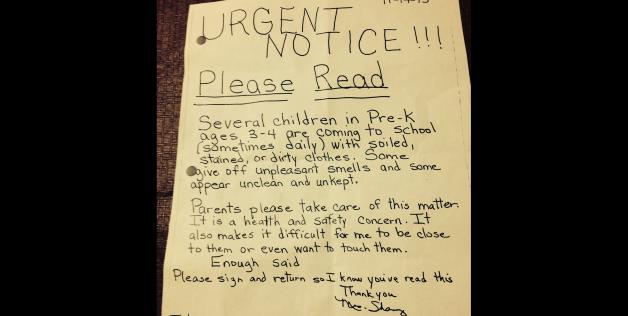 11-14-13
URGENT
NOTICE!!!
Please Read
Several children in Pre-K
ages 3-4 are coming to school
(sometimes daily) with soiled,
stained, or dirty clothes. Some
give off unpleasant smells and some
appear unclean and unkept.
Parents please take care of this matter.
It is a health and safety concern. It
also makes it difficult for me to be close
to them or even want to touch them.
Enough said
Please sign and return so I know you've read this
Thank you